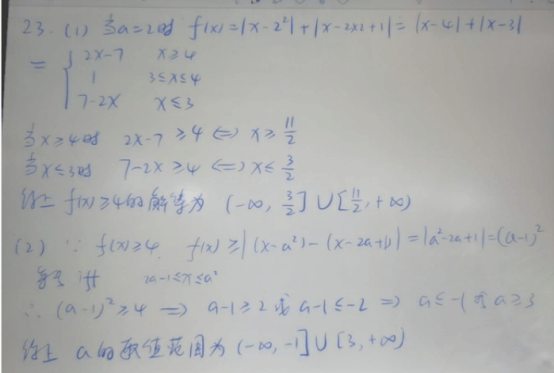 23. (1) 当a=2时 f(x)=|x-2²|+|x-2×2+1|=|x-4|+|x-3|
= { 2x-7 x≥4
1 3≤x≤4
7-2x x≤3
当x≥4时 2x-7≥4 ⇔ x≥11/2
当x≤3时 7-2x≥4 ⇔ x≤3/2
综上 f(x)≥4的解集为 (-∞, 3/2]∪[11/2, +∞)
(2) ∵ f(x)≥4 f(x)≥|(x-a²)-(x-2a+1)|=|a²-2a+1|=(a-1)²
iff 2a-1≤x≤a²
∴ (a-1)²≥4 ⇒ a-1≥2或a-1≤-2 ⇒ a≤-1或a≥3
综上 a的取值范围为 (-∞, -1]∪[3, +∞)